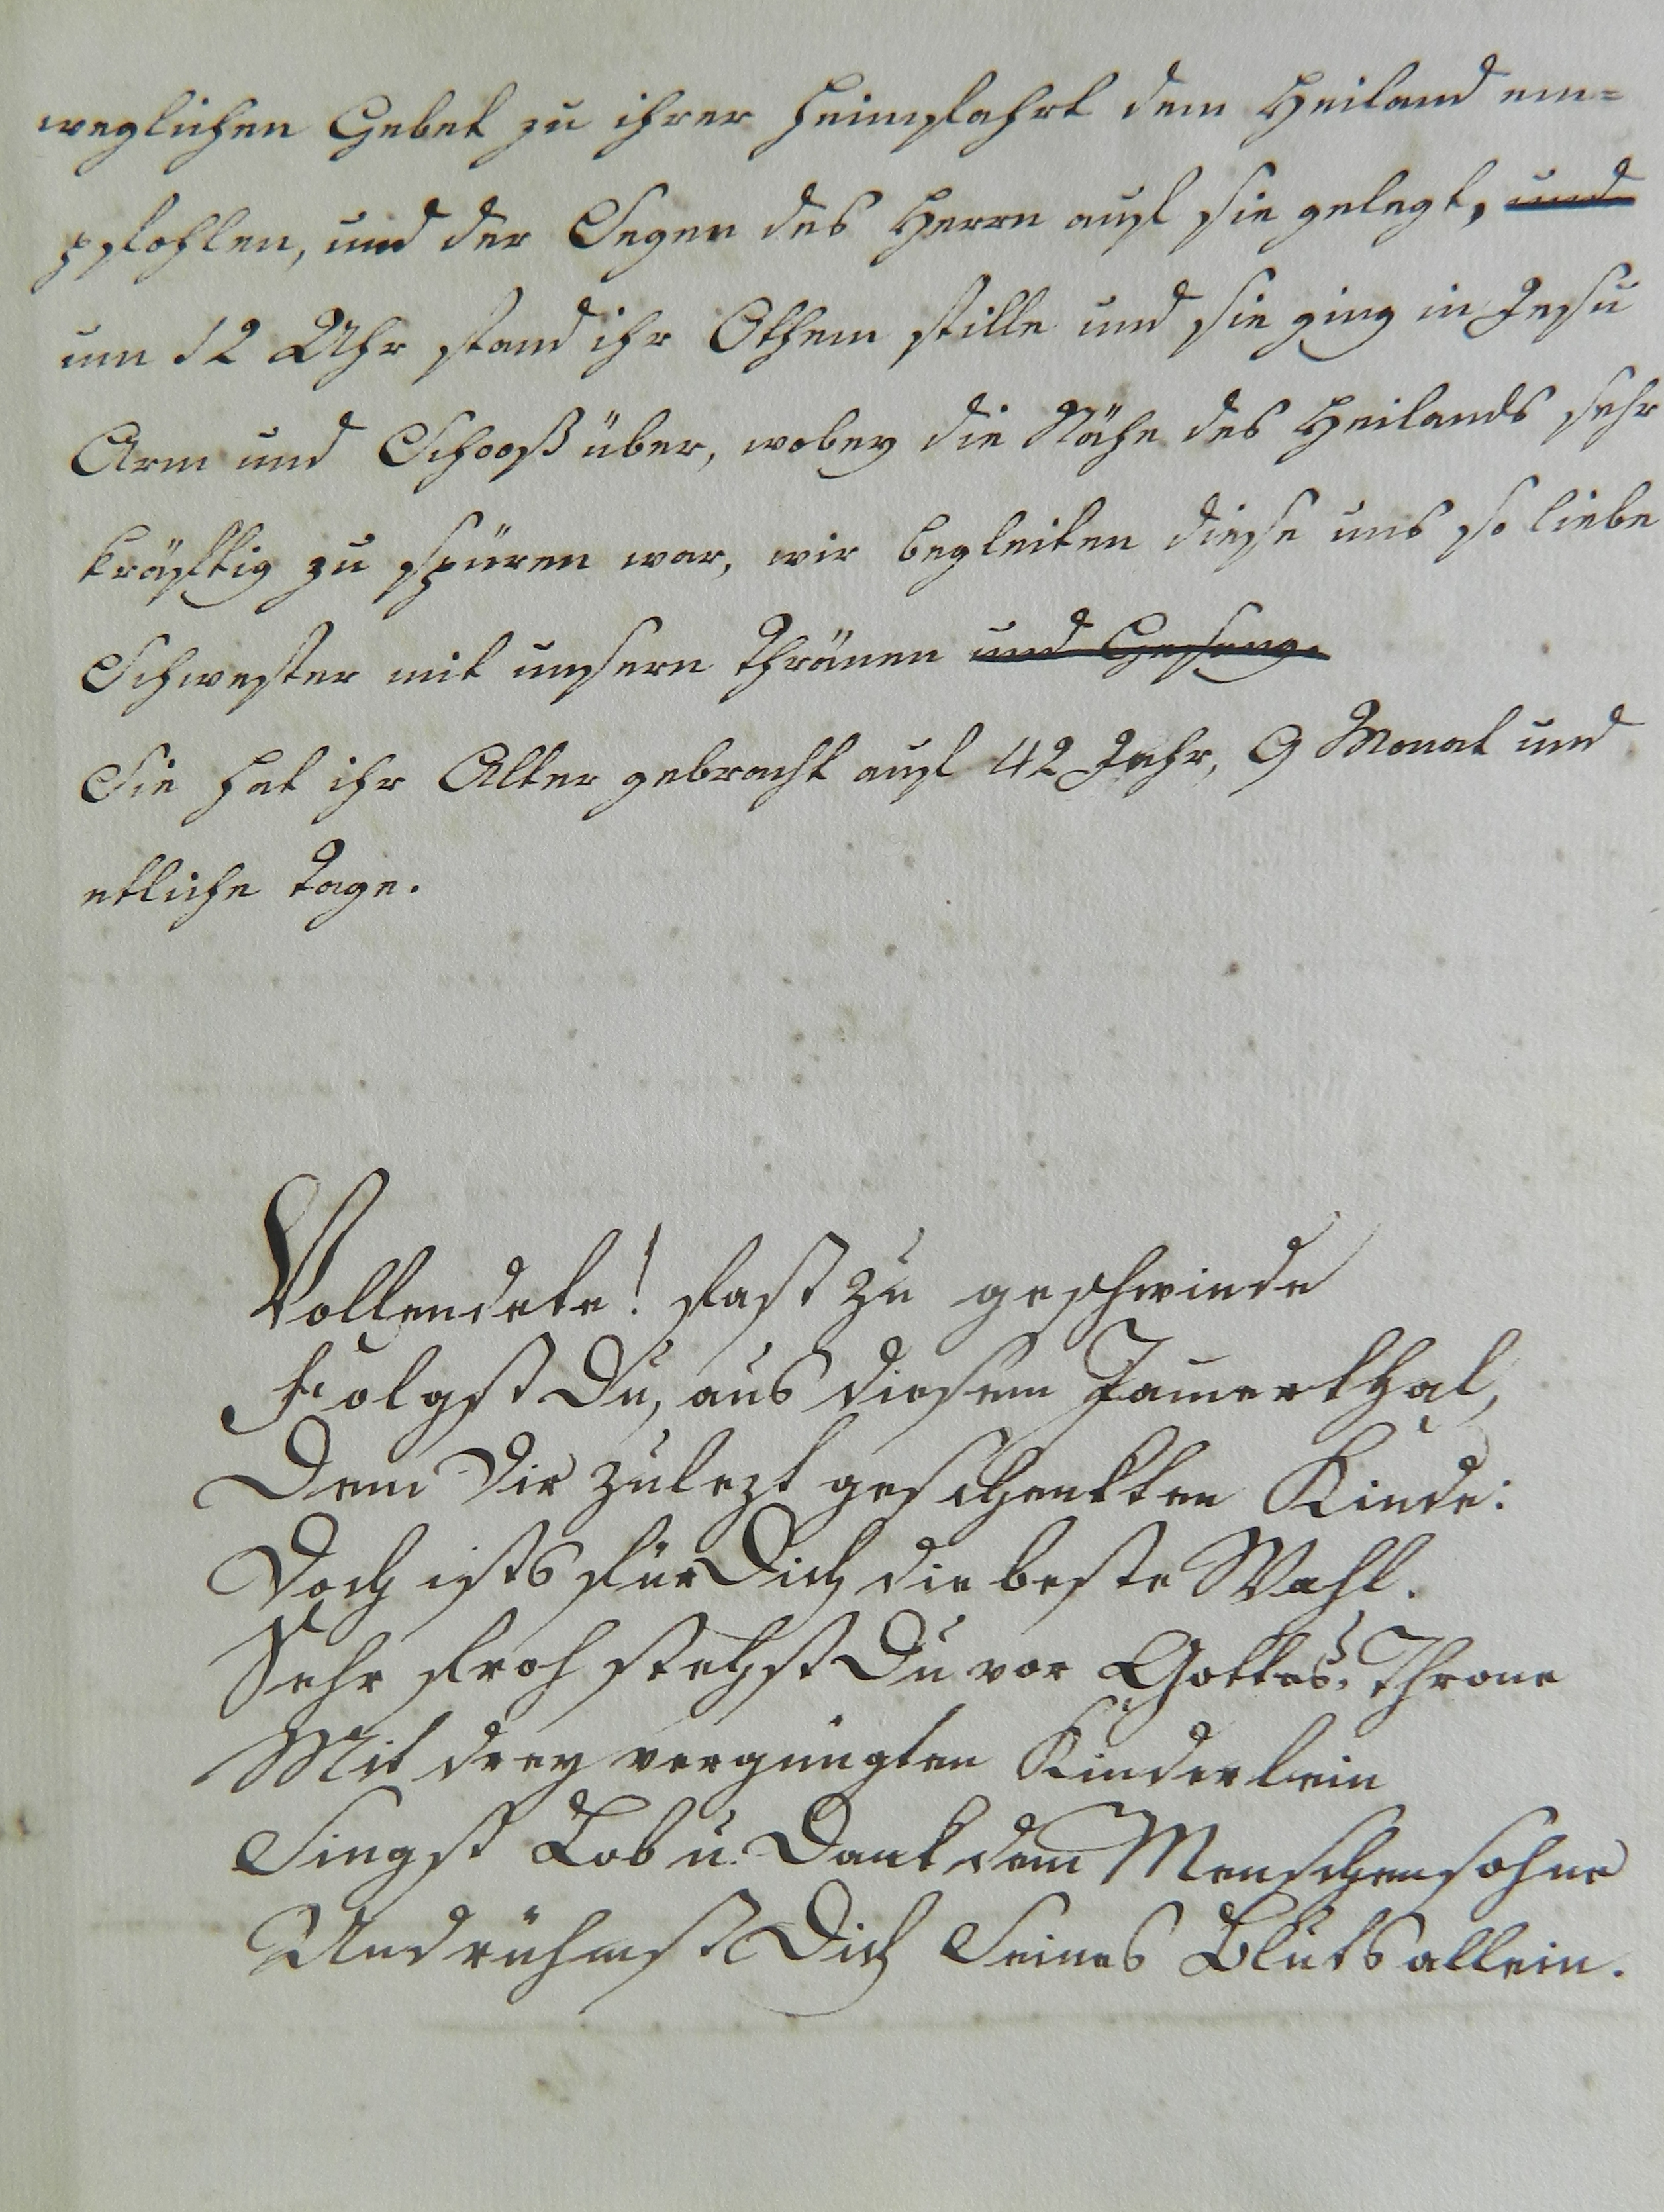 weglichen Gebet zu ihrer Heimfahrt dem Heiland em=
pfohlen, und der Segen des Herrn auf sie gelegt, und
um 12 Uhr stand ihr Othem stille und sie ging in Jesu
Arm und Schooß über, wobey die Nähe des Heilands sehr
kräftig zu spüren war, wir begleiten diese uns so liebe
Schwester mit unsern Thränen und Gesang.
Sie hat ihr Alter gebracht auf 42 Jahr, 9 Monat und
etliche Tage.
Vollendete! fast zu geschwinde
Folgst Du, aus diesem Jam̅erthal,
Dem Dir zulezt geschenkten Kinde:
Doch ists für Dich die beste Wahl.
Sehr froh stehst Du vor Gottes Throne
Mit drey vergnügten Kinderlein
Singst Lob u. Dank dem Menschensohne
Und rühmst Dich Seines Bluts allein.